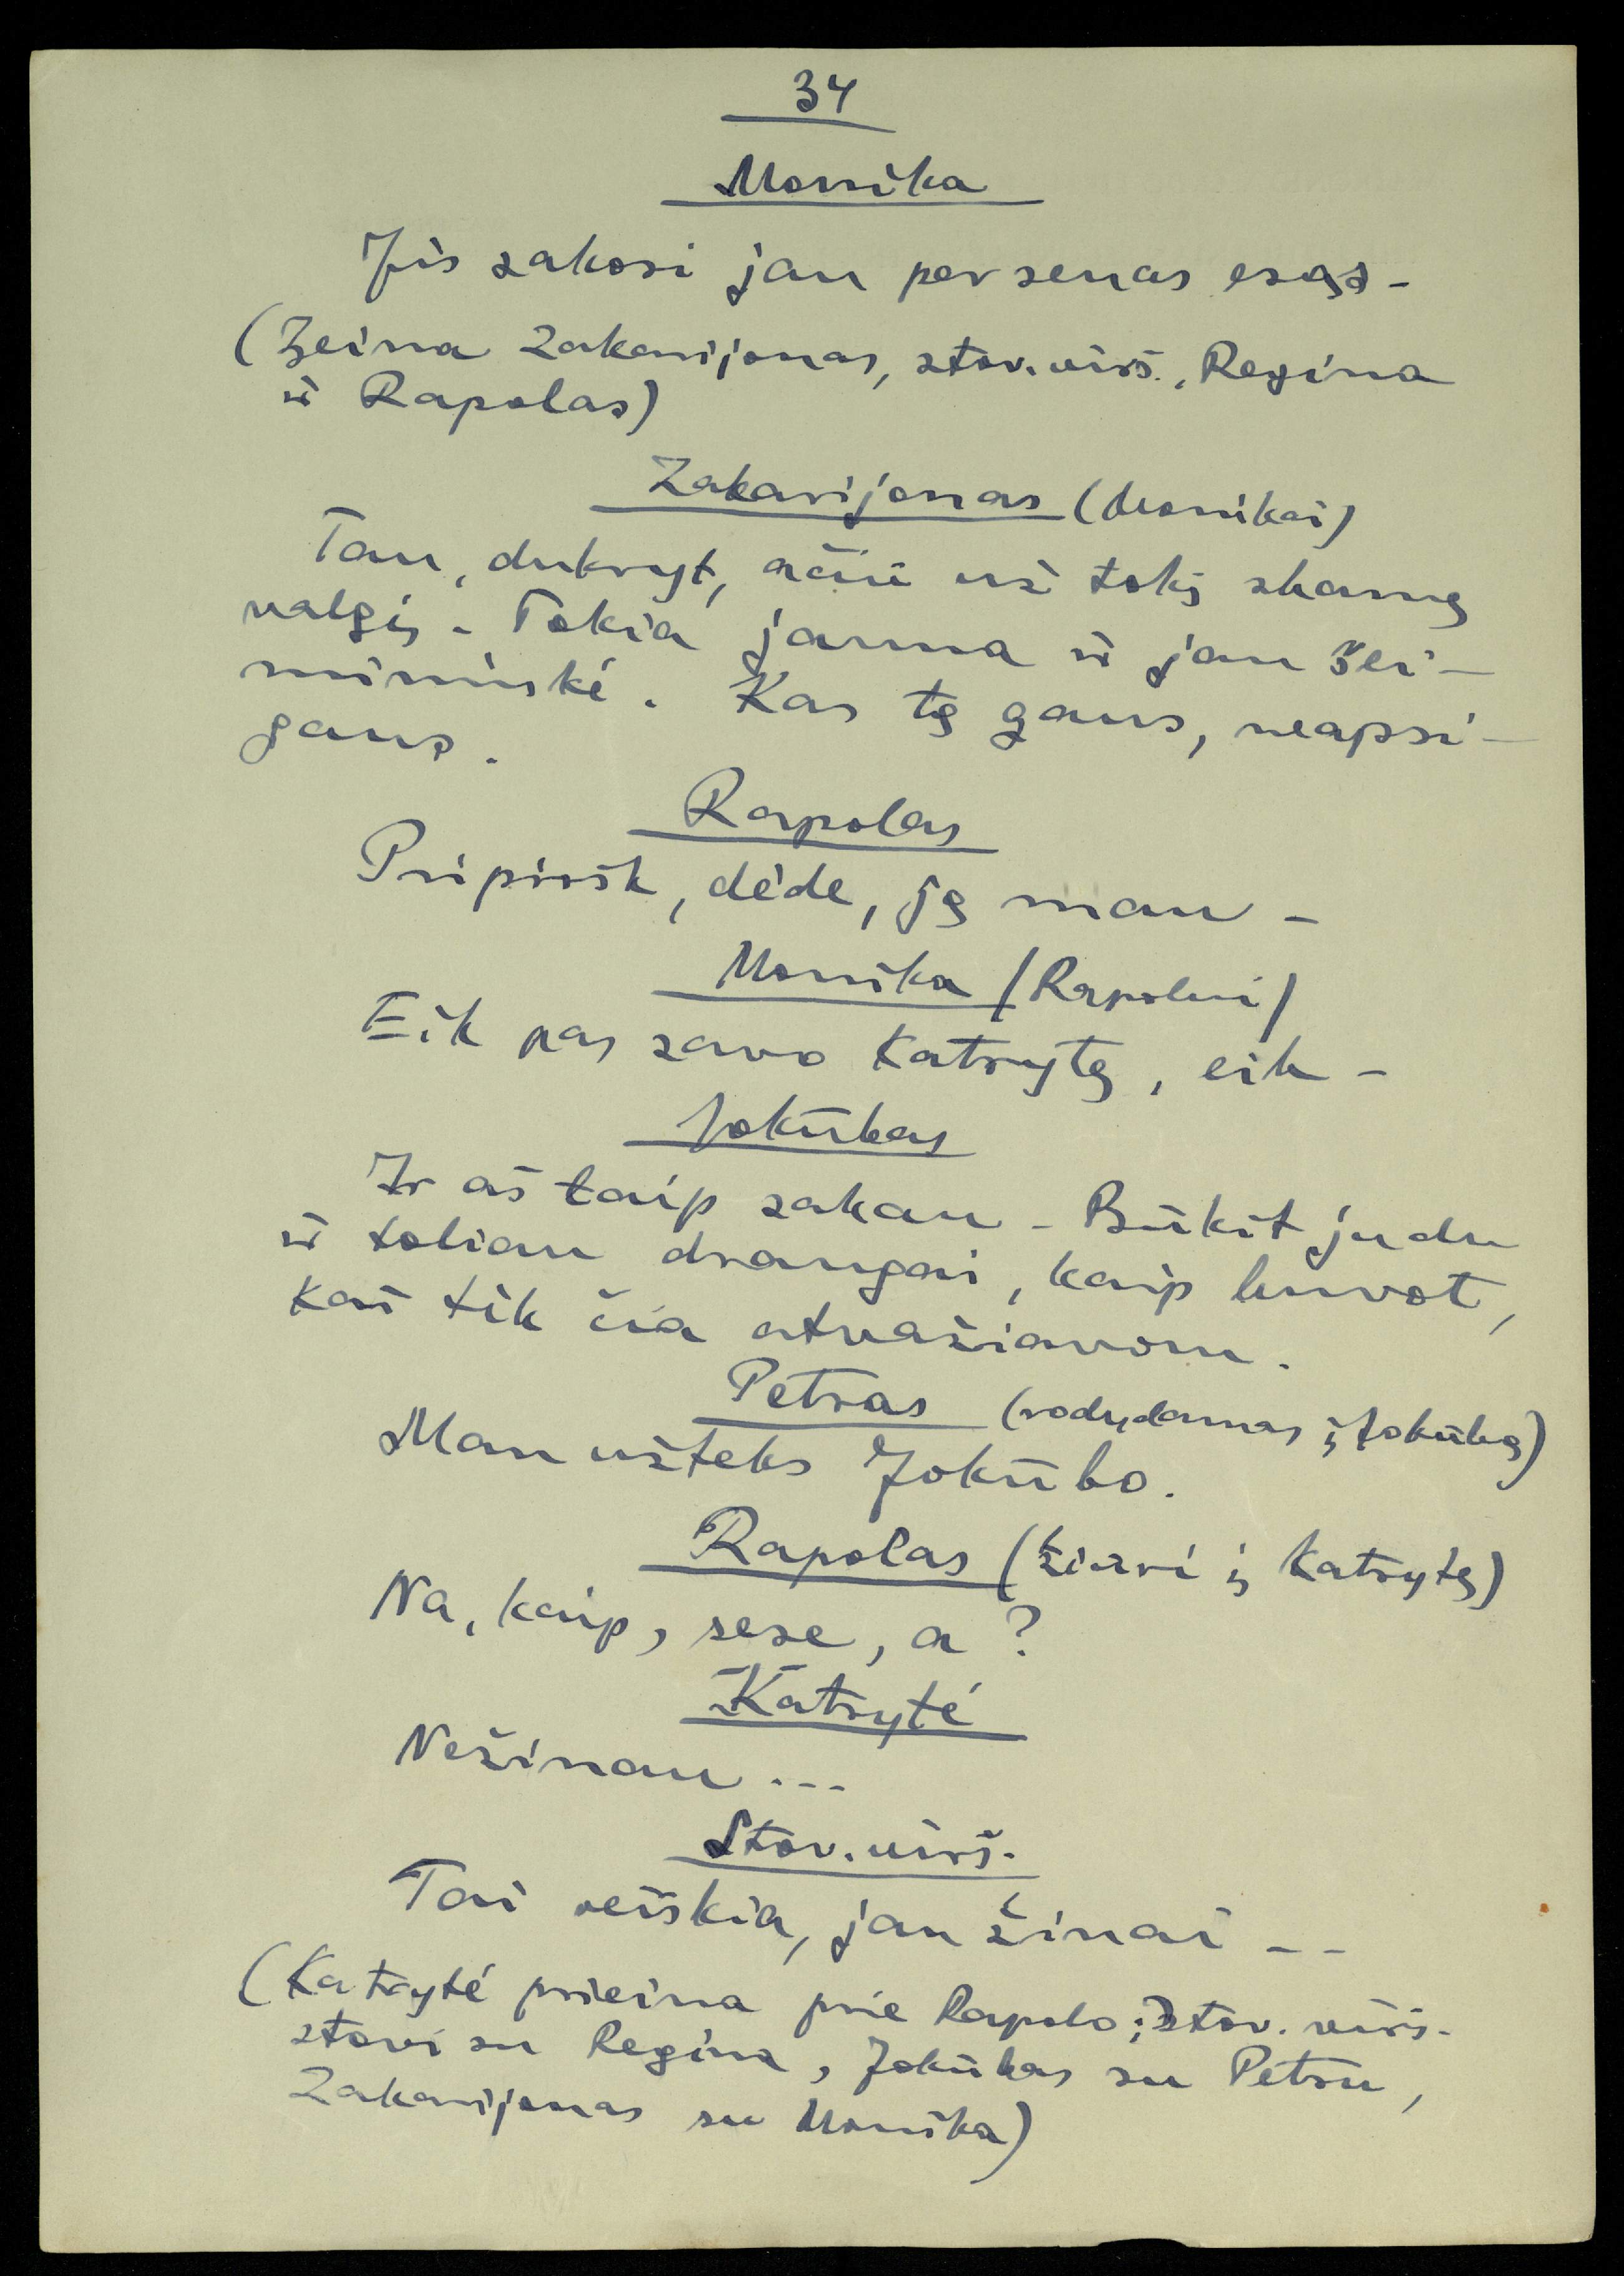 34
Monika
Jis sakosi jau per senas esąs -
(Įeina Zakarijonas, stov. virš., Regina
ir Rapolas)
Zakarijonas (Monikai)
Tau, dukryt, ačiū už tokį skanų
valgį. Tokia jauna ir jau šei-
mininkė. Kas tą gaus, neapsi-
gaus.
Rapolas
Pripiršk, dėde, ją man -
Monika (Rapolui)
Eik pas savo Katrytę, eik -
Jokūbas
Ir aš taip sakau - Būkit judu
ir toliau draugai, kaip buvot,
kai tik čia atvažiavom.
Petras (rodydamas į Jokūbą)
Man užteks Jokūbo.
Rapolas (žiūri į Katrytę)
Na, kaip, sese, a?
Katrytė
Nežinau ...
Stov. virš.
Tai reiškia, jau žinai --
(Katrytė prieina prie Rapolo; stov. virš.
stovi su Regina, Jokūbas su Petru,
Zakarijonas su Monika)